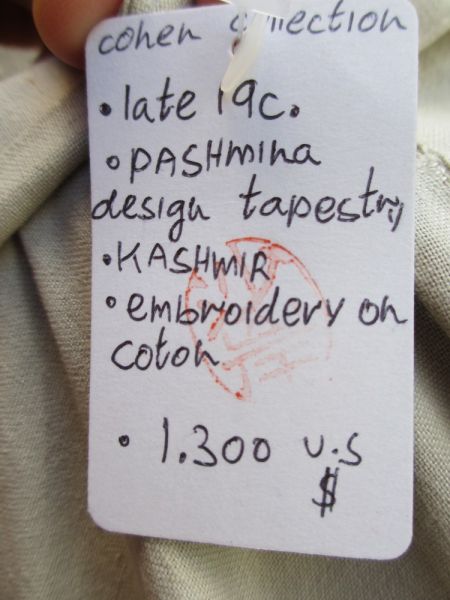 cohen collection
• late 19c.
• PASHMINA
design tapestry
• KASHMIR
• embroidery on
coton
• 1.300 U.S
$